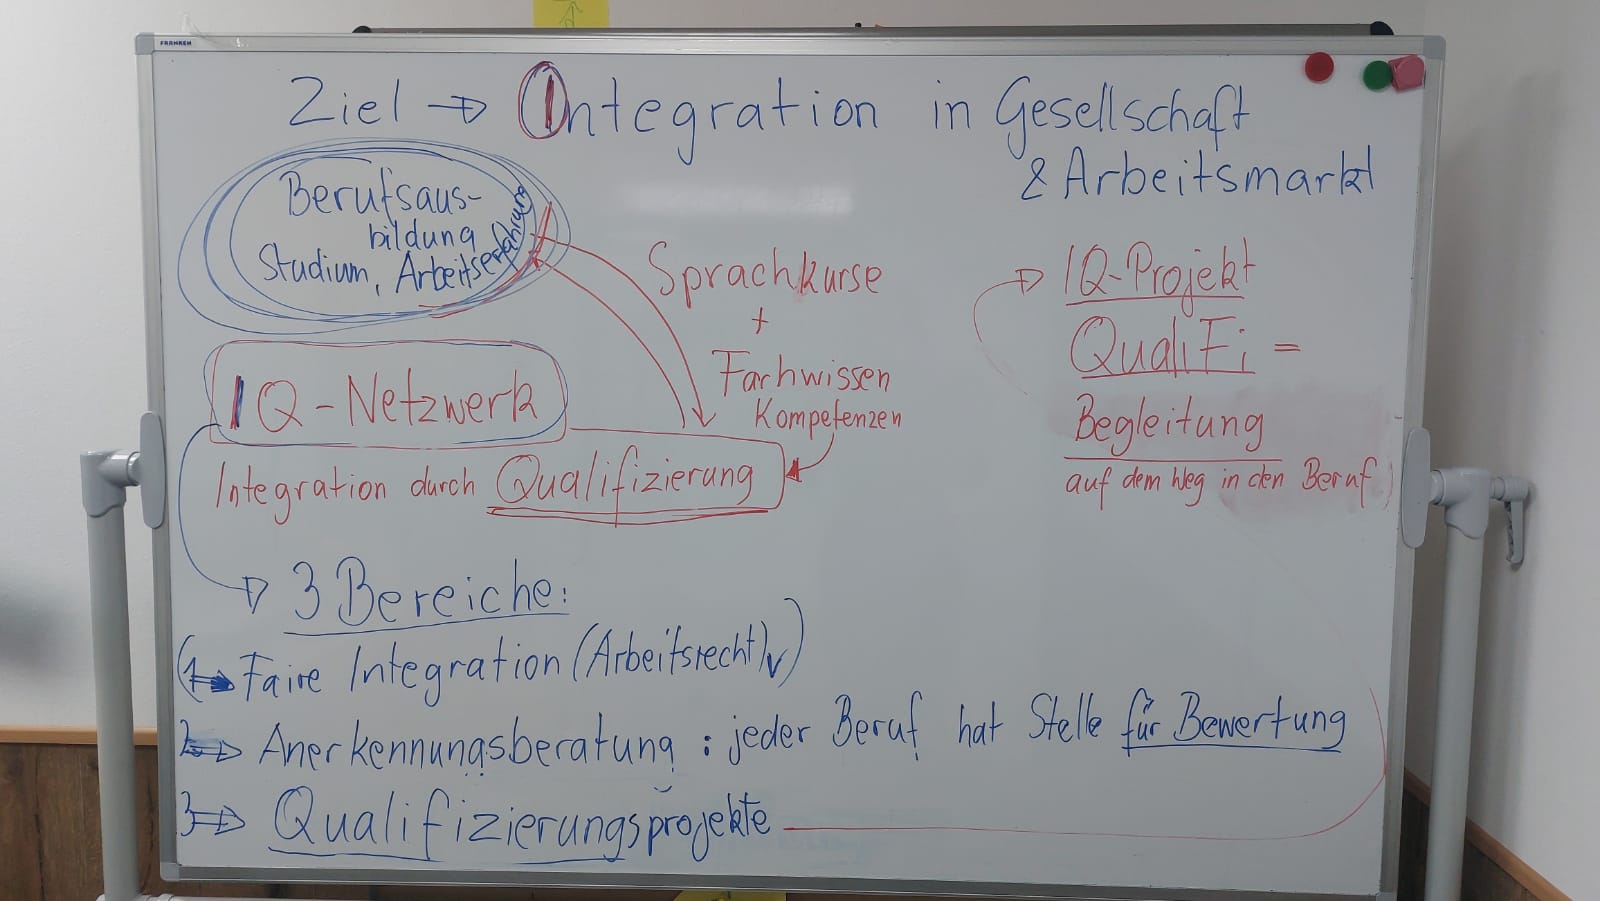 FRANKEN
Ziel → Integration in Gesellschaft
& Arbeitsmarkt
Berufsaus-
bildung
Studium, Arbeitserfahrung
Sprachkurse
+
Fachwissen
Kompetenzen
IQ-Netzwerk
Integration durch Qualifizierung
→ IQ-Projekt
QualiFi =
Begleitung
auf dem Weg in den Beruf)
→ 3 Bereiche:
(1→ Faire Integration (Arbeitsrecht) ✓)
2→ Anerkennungsberatung : jeder Beruf hat Stelle für Bewertung
3→ Qualifizierungsprojekte